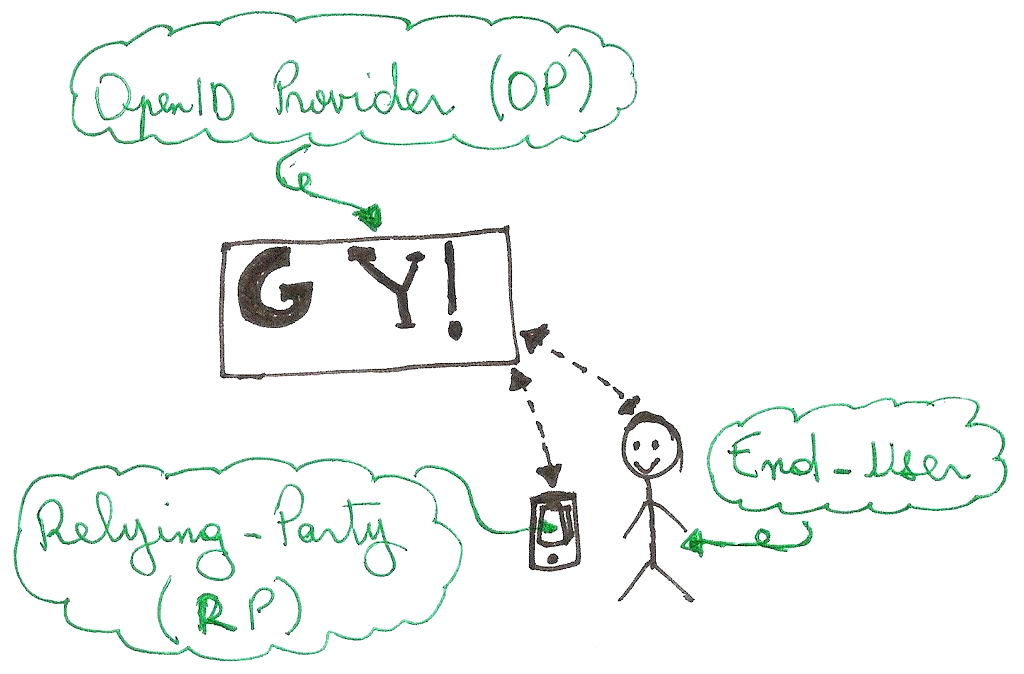 OpenID Provider (OP)
G Y!
End-User
Relying-Party
(RP)